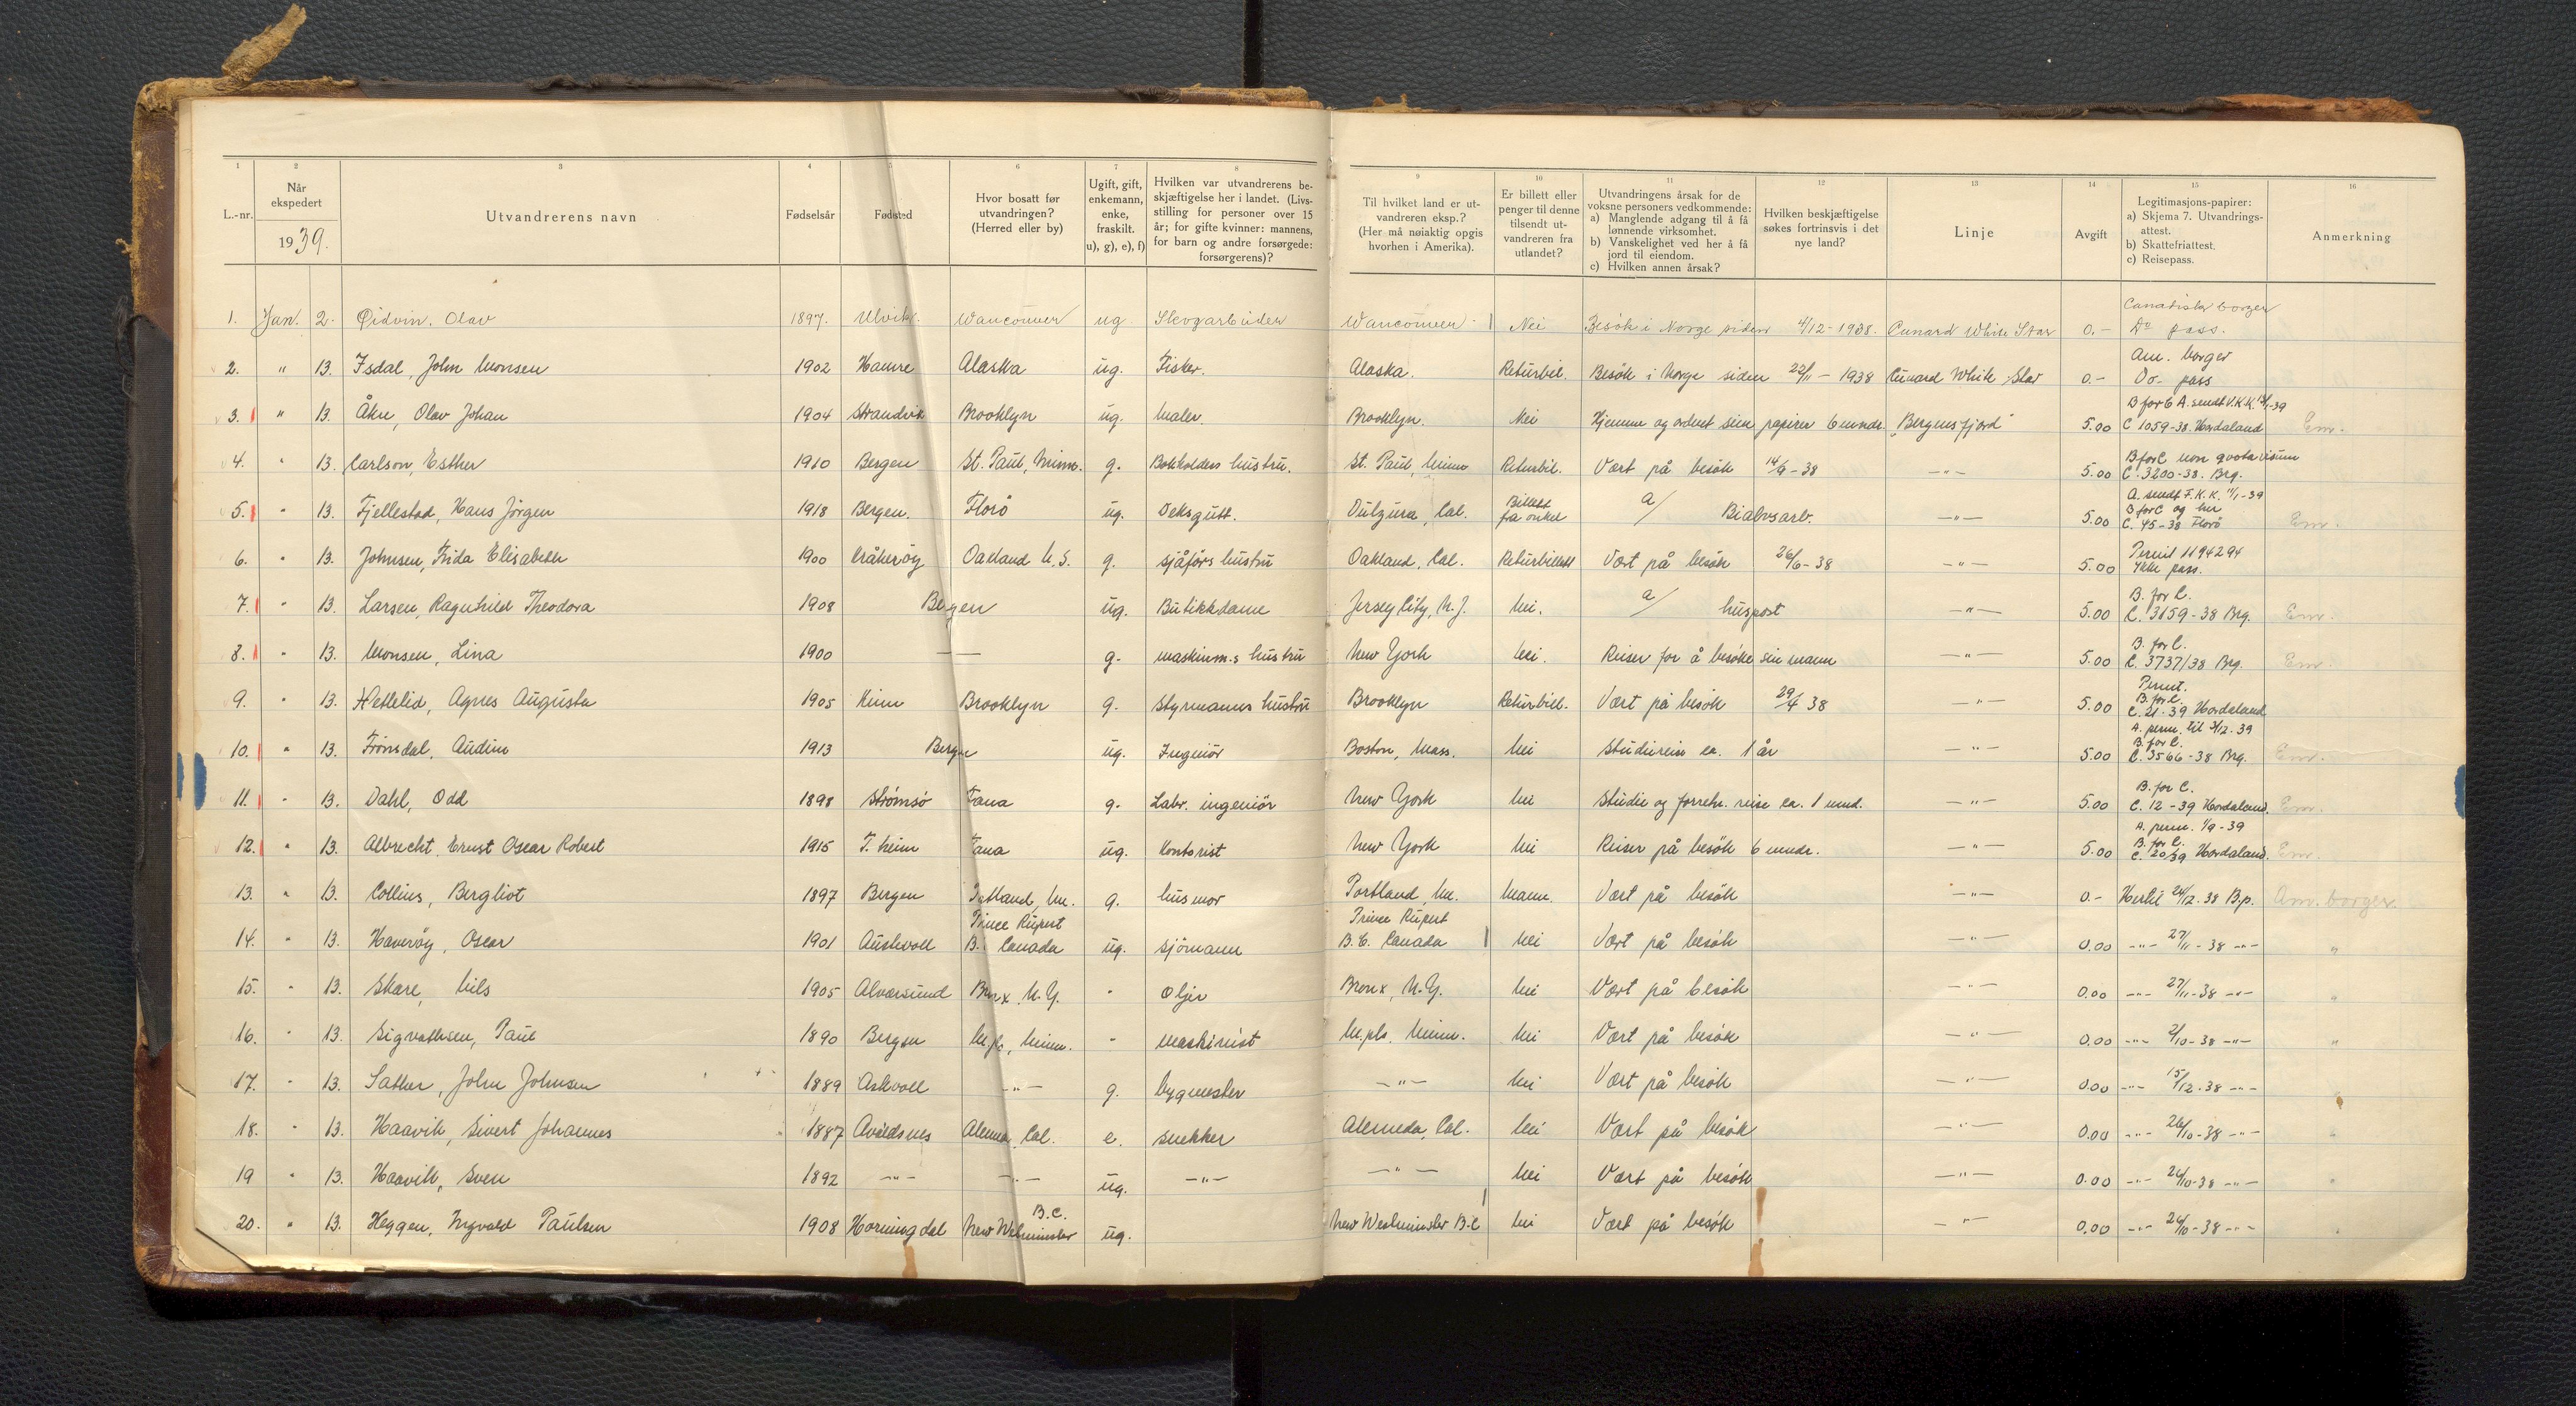 1 2 3 4 5 6 7 8 9 10 11 12 13 14 15 16
L.-nr. | Når ekspedert 1939. | Utvandrerens navn | Fødselsår | Fødsted | Hvor bosatt før utvandringen? (Herred eller by) | Ugift, gift, enkemann, enke, fraskilt. u), g), e), f) | Hvilken var utvandrerens beskjæftigelse her i landet. (Livsstilling for personer over 15 år; for gifte kvinner: mannens, for barn og andre forsørgede: forsørgerens)? | Til hvilket land er utvandreren eksp.? (Her må nøiaktig opgis hvorhen i Amerika). | Er billett eller penger til denne tilsendt utvandreren fra utlandet? | Utvandringens årsak for de voksne personers vedkommende: a) Manglende adgang til å få lønnende virksomhet. b) Vanskelighet ved her å få jord til eiendom. c) Hvilken annen årsak? | Hvilken beskjæftigelse søkes fortrinsvis i det nye land? | Linje | Avgift | Legitimasjons-papirer: a) Skjema 7. Utvandringsattest. b) Skattefriattest. c) Reisepass. | Anmerkning
1. Jan. 2. Øidvin, Olav 1897. Ulvik. Wancouver ug Skogarbeider Wancouver Nei Besøk i Norge siden 4/12-1938. Cunard White Star 0.- Canadisk borger Do pass.
2. " 13. Isdal, John Monsen 1902 Hamre Alaska ug. Fisker. Alaska. Returbil. Besøk i Norge siden 22/11-1938 Cunard White Star 0.- Am. borger Do- pass
3. " 13. Åkre, Olav Johan 1904 Strandvik Brooklyn ug. Maler. Brooklyn. Nei Hjemme og ordnet sine papirer 6 mndr. "Bergensfjord" 5.00 B for C A. sendt V.K.K. -39 C 1059-38. Hordaland Em.
4. " 13. Carlson, Esther 1910 Bergen St. Paul, Minn. g. Bokholders hustru. St. Paul, Minn Returbil. Vært på besøk 14/9-38 -"- 5.00 B for C non qvota visum C. 3200-38. Brg.
5. " 13. Fjellestad, Hans Jørgen 1918 Bergen. Florø ug. Deksgutt. Dulzura, Cal. Billett fra onkel a/ Biabvsarb. -"- 5.00 A. sendt F.K.K. 11/1-39 B for C og her C. 45-38 Florø Em.
6. " 13. Johnsen, Frida Elisabeth 1900 Kråkerøy Oakland U.S. g. sjåførs hustru Oakland, Cal. Returbillett Vært på besøk 26/6-38 -"- 5.00 Permit 1194294 Ikke pass.
7. " 13. Larsen, Ragnhild Theodora 1908 Bergen ug. Butikkdame Jersey City, N.J. Nei. a/ huspost -"- 5.00 B. for C. C. 3159-38 Brg. Em.
8. " 13. Monsen, Lina 1900 — — g. maskinm.s hustru New York Nei. Reiser for å besøke sin mann -"- 5.00 B. for C. C. 3737/38 Brg. Em.
9. " 13. Hetlelid, Agnes Augusta 1905 Kinn Brooklyn g. Styrmanns hustru Brooklyn Returbil. Vært på besøk 29/4 38 -"- 5.00 Permit. B. for C. C. 21-39 Hordaland
10. " 13. Frønsdal, Audun 1913 Bergen ug. Ingeniør Boston, Mass. Nei Studiereise ca. 1 år -"- 5.00 A. perm. til 31/12-39 B. for C. C. 3566-38 Brg. Em.
11. " 13. Dahl, Odd 1898 Strømsø Fana g. Labr. ingeniør New York Nei Studie og forretn. reise ca. 1 mnd. -"- 5.00 B. for C. C. 12-39 Hordaland. Em.
12. " 13. Albrecht, Ernst Oscar Robert 1915 T.heim Fana ug. Kontorist New York Nei Reiser på besøk 6 mndr. -"- 5.00 A. perm. 1/9-39 B. for C. C. 20/39 Hordaland. Em.
13. " 13. Collins, Bergliot 1897 Bergen Portland, Me. g. husmor Portland, Me. Mann. Vært på besøk -"- 0.- Hertil 24/12.38 B.p. Am. borger.
14. " 13. Haverøy, Oscar 1901 Austevoll Prince Rupert B.C. Canada ug. sjømann Prince Rupert B.C. Canada Nei Vært på besøk -"- 0.00 -"- 27/11-38 -"- "
15. " 13. Skare, Nils 1905 Alversund Bronx, N.Y. " oljer Bronx, N.Y. Nei Vært på besøk -"- 0.00 -"- 27/11-38 -"- "
16. " 13. Sigvathsen, Paul 1890 Bergen M.pls, Minn. " maskinist M.pls. Minn. Nei Vært på besøk -"- 0.00 -"- 2/10-38 -"- "
17. " 13. Sather, John Johnsen 1889 Askvoll -"- g. bygmester -"- Nei Vært på besøk -"- 0.00 -"- 15/12-38 -"- "
18. " 13. Haavik, Sivert Johannes 1887 Avaldsnes Alemeda, Cal. e. snekker Alemeda, Cal. Nei Vært på besøk -"- 0.00 -"- 26/10-38 -"- "
19 " 13. Haavik, Sven 1892 -"- -"- ug. -"- -"- Nei Vært på besøk -"- 0.00 -"- 26/10-38 -"- "
20. " 13. Heggen, Ingvald Paulsen 1908 Hornindal New Westminster B.C. ug. New Westminster B.C Nei Vært på besøk -"- 0.00 -"- 26/10-38 -"- "